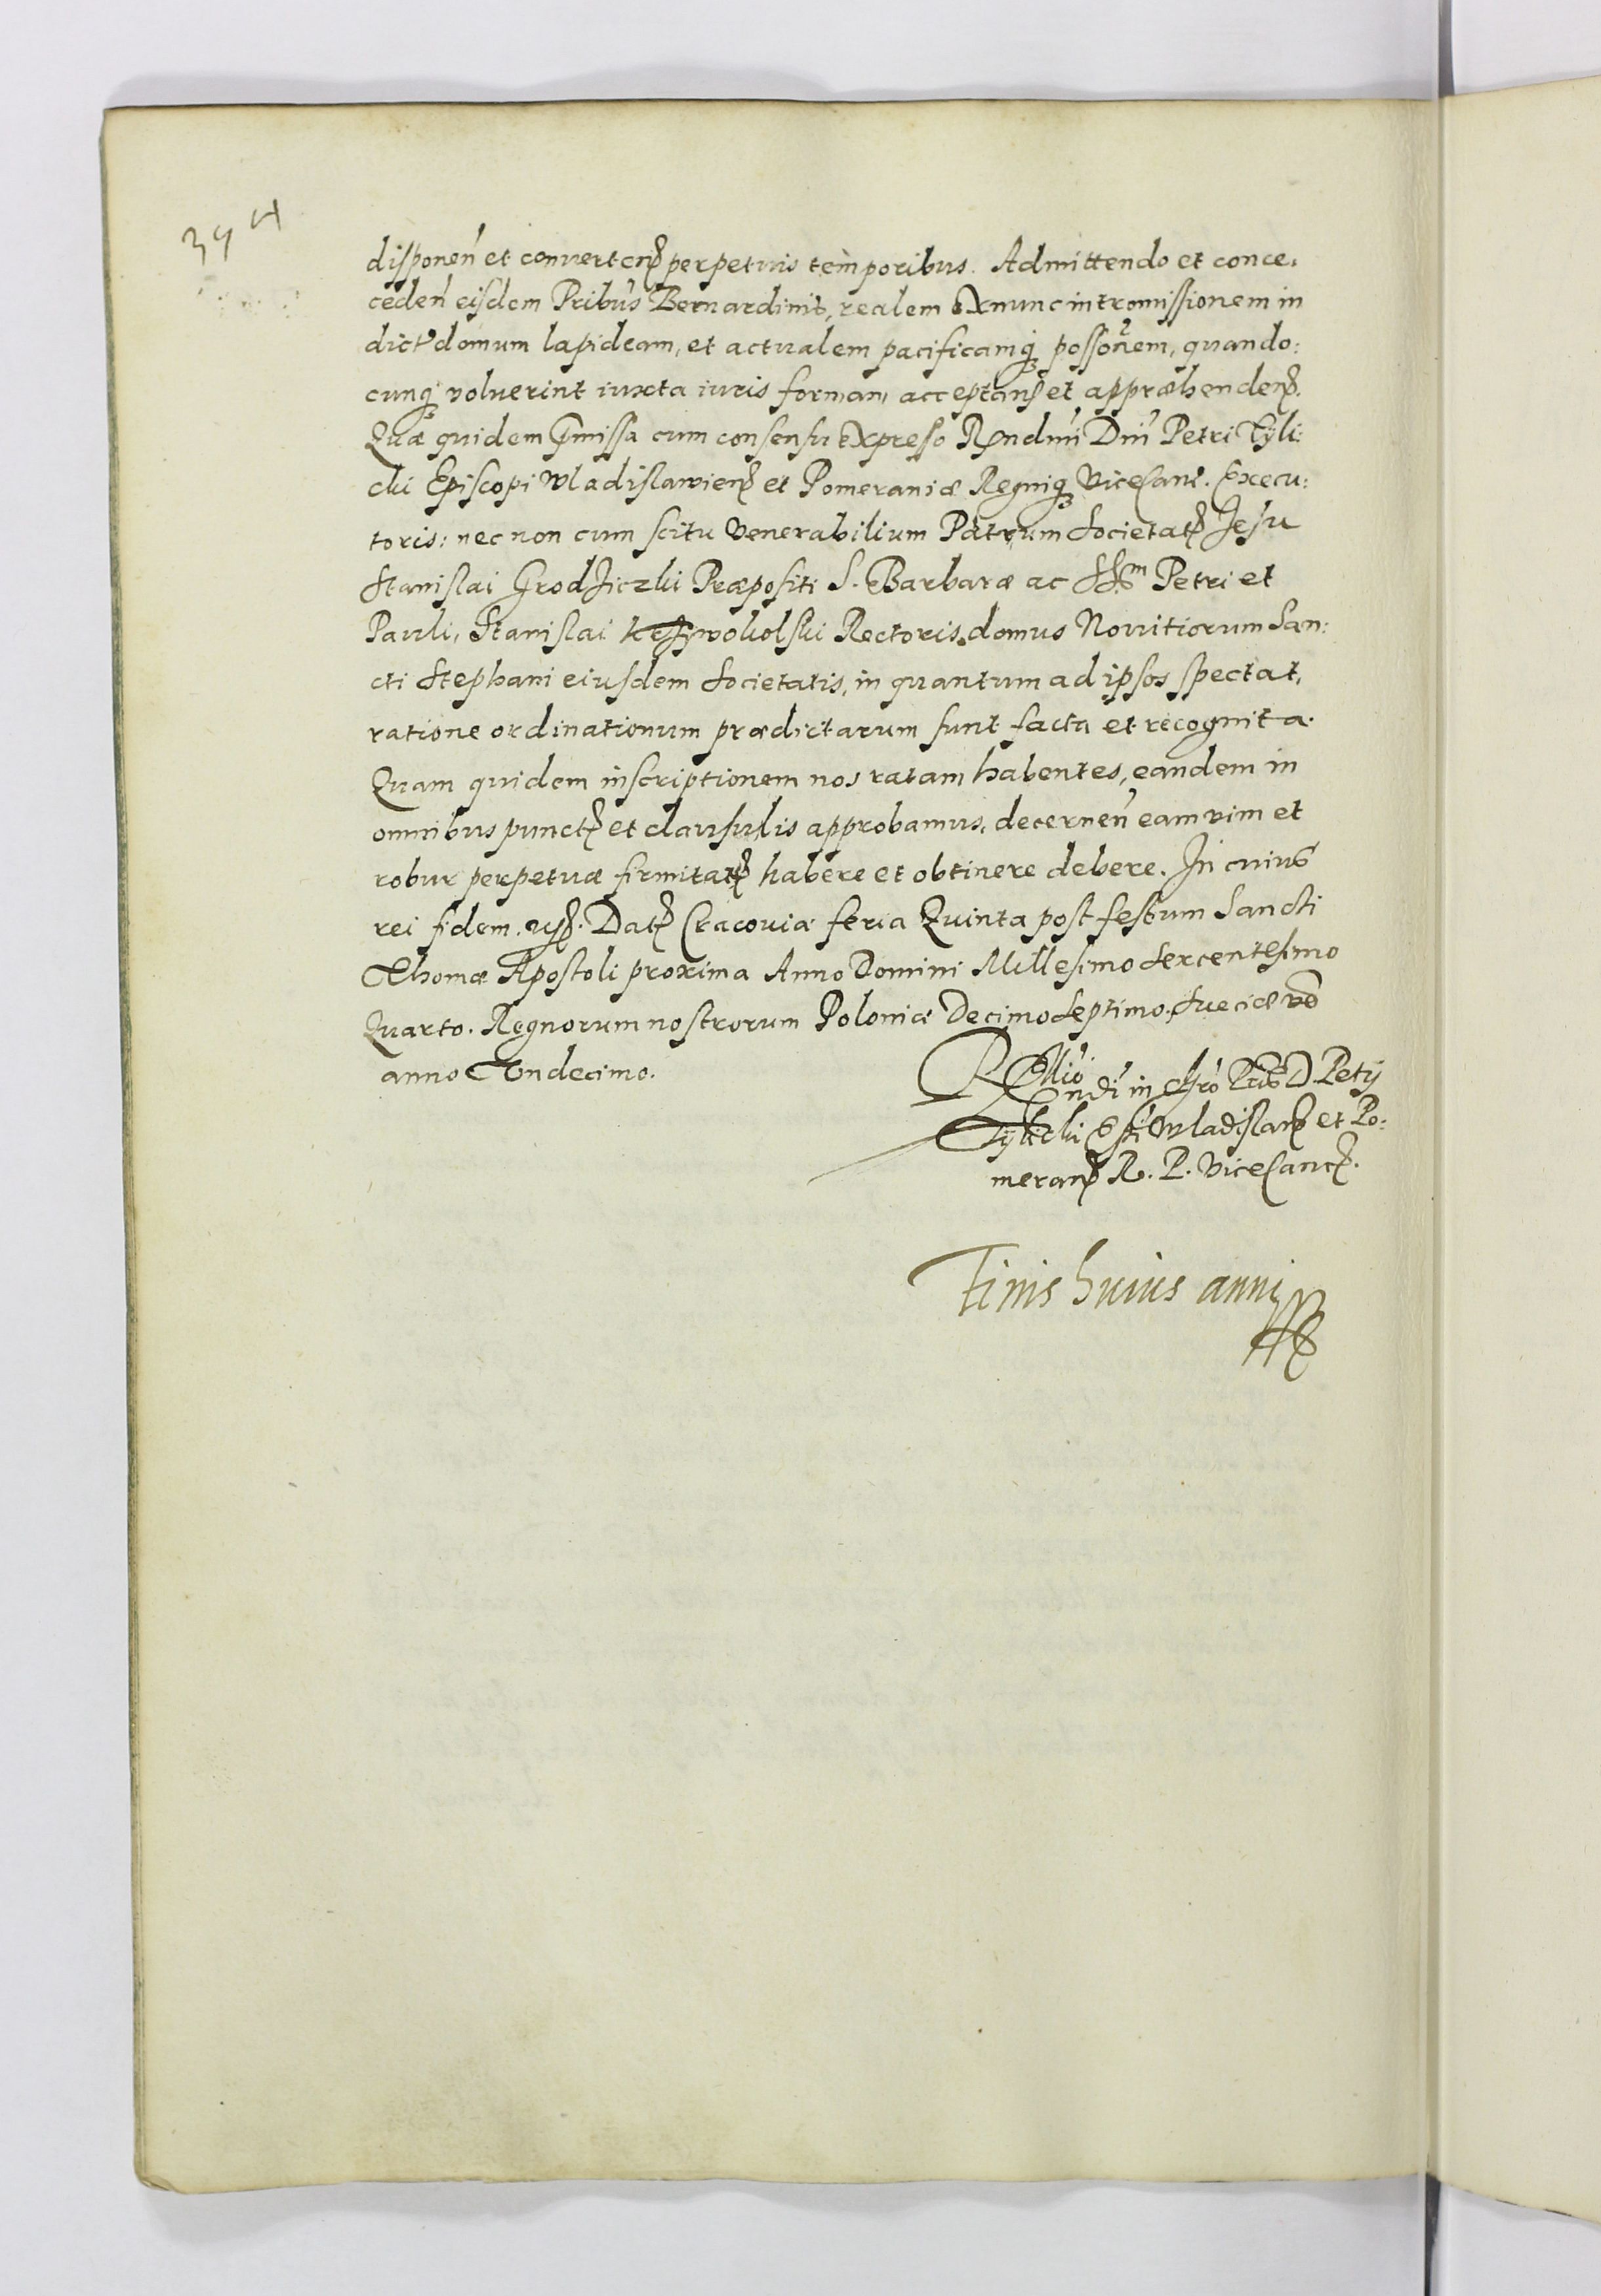 394
disponen et converten perpetuis temporibus. Admittendo et conce,
ceden eisdem Pribus Bernardinis, realem exnunc intromissionem in
dict domum lapideam, et actualem pacificamq possonem, quando:
cunq voluerint iuxta iuris formam acceptan et appræhenden.
Quæ quidem præmissa cum consensu expresso Rndmi Dni Petri Tyli:
cki Episcopi Wladislawien et Pomeraniæ Regniq Vicecanc. Execu:
toris: nec non cum scitu Venerabilium Patrum Societat Jesu
Stanislai Grodziczki Præpositi S. Barbaræ ac SS.m Petri et
Pauli, Stanislai Rectoris domus Novitiorum San:
cti Stephani eiusdem Societatis, in quantum ad ipsos spectat,
ratione ordinationum prædictarum sunt facta et recognita.
Quam quidem inscriptionem nos ratam habentes, eandem in
omnibus punct et clausulis approbamus, decernen eam vim et
robur perpetuæ firmitat habere et obtinere debere. In cuius
rei fidem. Dat Cracoviæ feria Quinta post festum Sancti
Thomæ Apostoli proxima Anno Domini Millesimo Sexcentesimo
Quarto. Regnorum nostrorum Poloniæ Decimo Septimo. Sueciæ vo
anno Undecimo.
Rllio Rndi in Chro Pris D. Petri
Tylicki Epi Wladislau et Po:
meran R. P. Vicecanc.
Finis huius anni